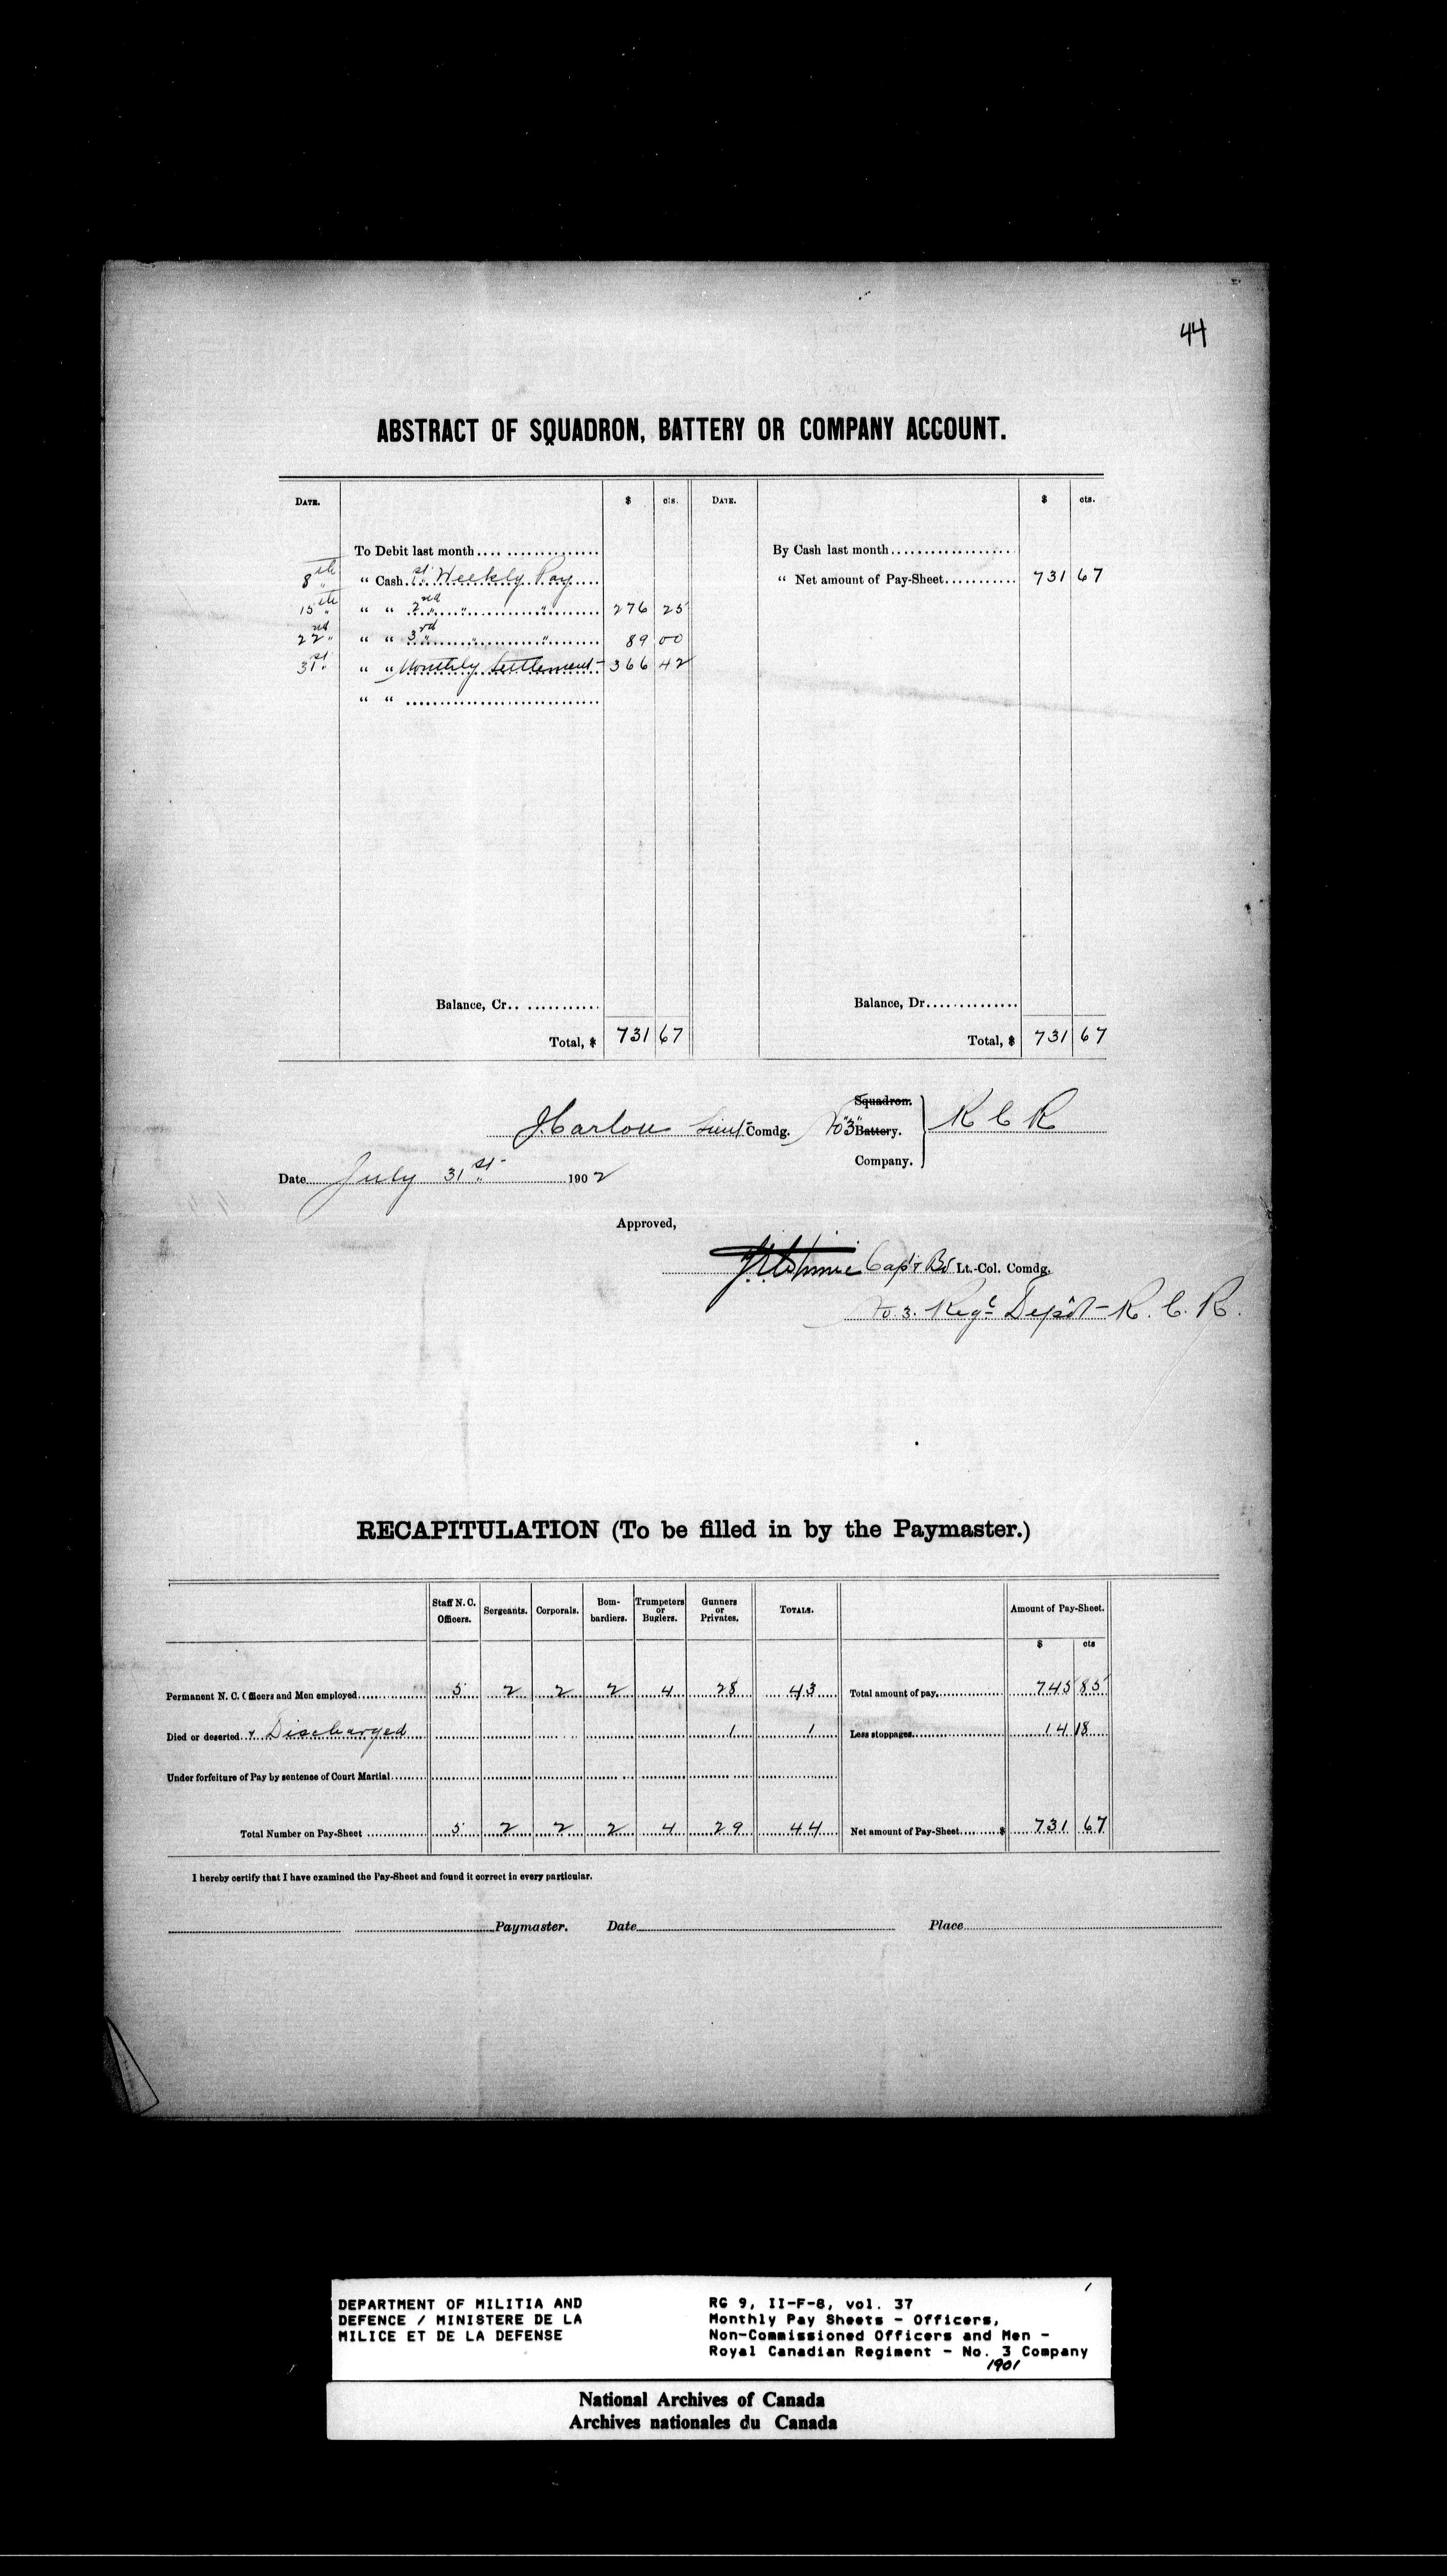 44
ABSTRACT OF SQUADRON, BATTERY OR COMPANY ACCOUNT.
DATE. $ cts. DATE. $ cts.
To Debit last month By Cash last month
8th " Cash 1st Weekly Pay " Net amount of Pay-Sheet 731 67
15th " " 2nd " " 276 25
22nd " " 3rd " " 89 00
31st " " Monthly Settlement 366 42
" "
Balance, Cr. Balance, Dr.
Total, $ 731 67 Total, $ 731 67
Squadron.
Lieut Comdg. No 3 Battery. R C R
Company.
Date July 31st 1902
Approved,
Capt Bd Lt.-Col. Comdg.
No. 3. Regl Depôt - R. C. R.
RECAPITULATION (To be filled in by the Paymaster.)
Staff N. C. Officers. Sergeants. Corporals. Bombardiers. Trumpeters or Buglers. Gunners or Privates. TOTALS. Amount of Pay-Sheet.
$ cts
Permanent N. C. Officers and Men employed 5 2 2 2 4 28 43 Total amount of pay 745 85
Died or deserted & Discharged 1 1 Less stoppages 14 18
Under forfeiture of Pay by sentence of Court Martial
Total Number on Pay-Sheet 5 2 2 2 4 29 44 Net amount of Pay-Sheet $ 731 67
I hereby certify that I have examined the Pay-Sheet and found it correct in every particular.
Paymaster. Date Place
1
DEPARTMENT OF MILITIA AND RG 9, II-F-8, vol. 37
DEFENCE / MINISTERE DE LA Monthly Pay Sheets - Officers,
MILICE ET DE LA DEFENSE Non-Commissioned Officers and Men -
Royal Canadian Regiment - No. 3 Company
1901
National Archives of Canada
Archives nationales du Canada